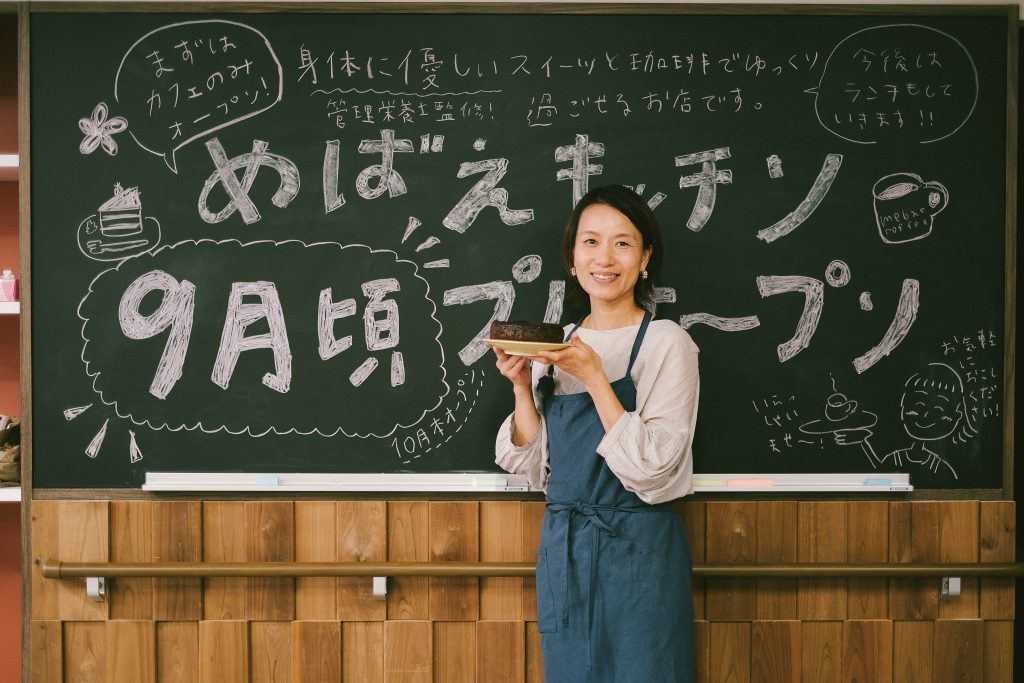 まずは
カフェのみ
オープン!
身体に優しいスイーツと珈琲でゆっくり
管理栄養士監修!
過ごせるお店です。
今後は
ランチもして
いきます!!
めばえキッチン
mebae
coffee
9月頃プレオープン
10月本オープン
いらっ
しゃい
ませ〜!
お気軽
に
おこし
ください!